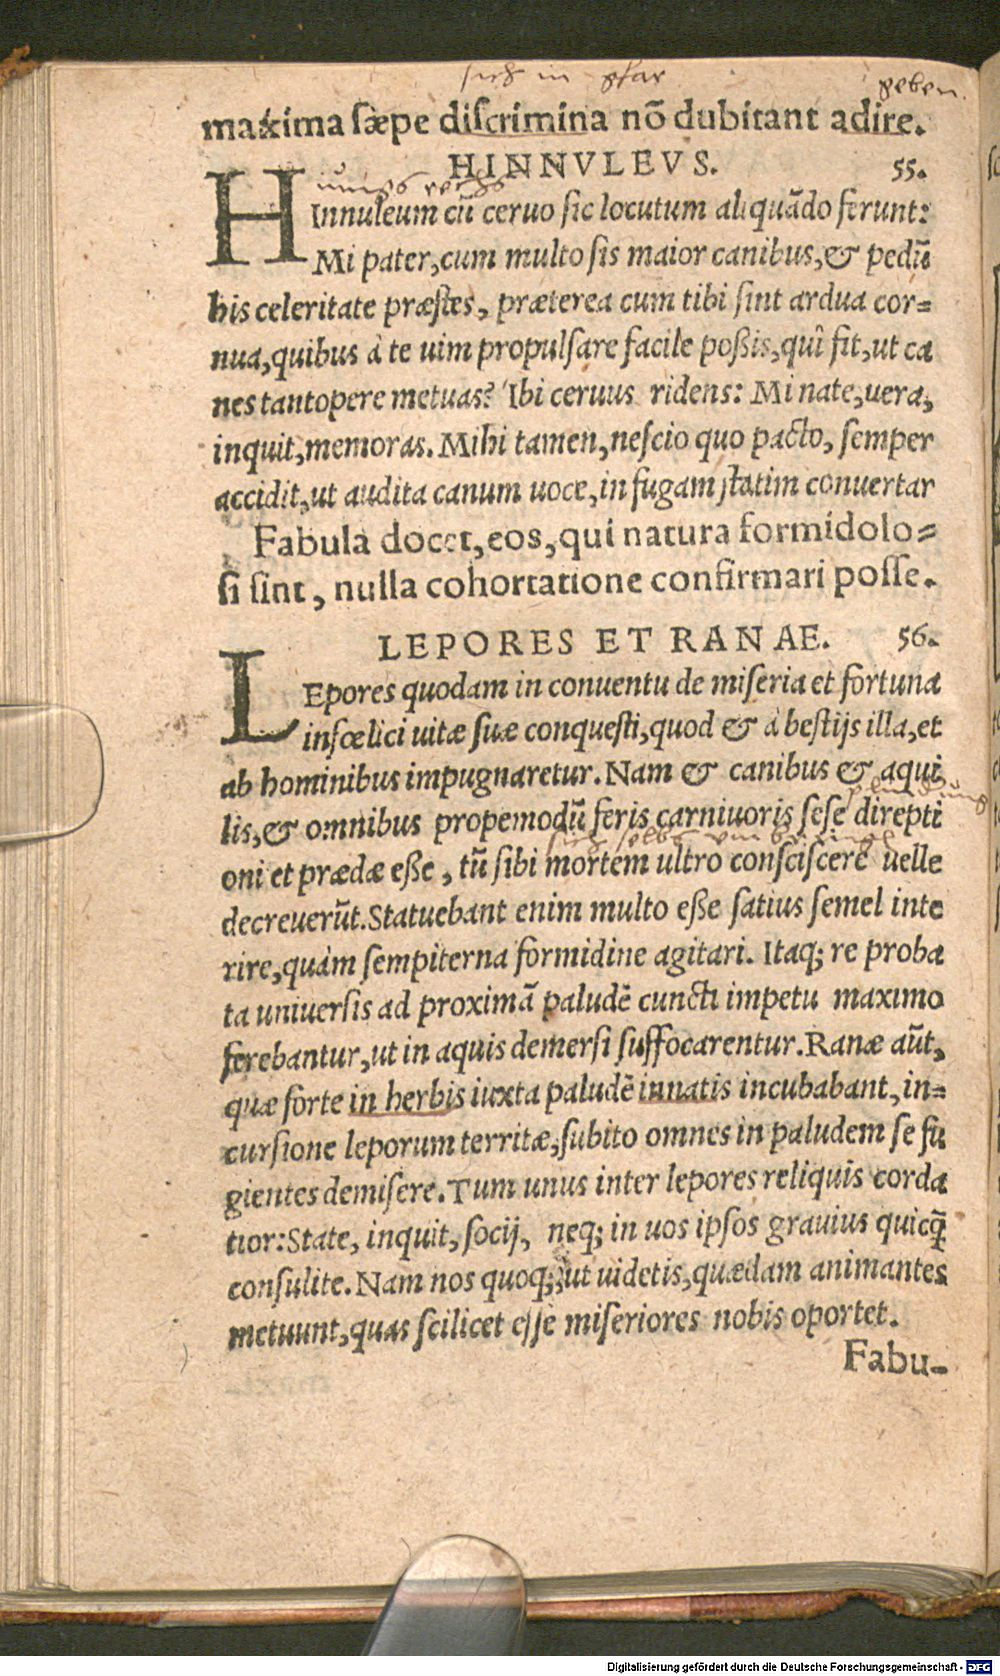 sich in gfar geben
maxima sæpe discrimina nõ dubitant adire.
HINNVLEVS. 55.
iungs rechs
HInnuleum cũ ceruo sic locutum aliquãdo ferunt:
Mi pater, cum multo sis maior canibus, & pedũ
his celeritate præstes, præterea cum tibi sint ardua cor=
nua, quibus à te uim propulsare facile poßis, quî fit, ut ca
nes tantopere metuas? Ibi ceruus ridens: Mi nate, uera,
inquit, memoras. Mihi tamen, nescio quo pacto, semper
accidit, ut audita canum uoce, in fugam statim conuertar
Fabula docet, eos, qui natura formidolo=
si sint, nulla cohortatione confirmari posse.
LEPORES ET RANAE. 56.
LEpores quodam in conuentu de miseria et fortuna
infœlici uitæ suæ conquesti, quod & à bestijs illa, et
ab hominibus impugnaretur. Nam & canibus & aqui
lis, & omnibus propemodũ feris carniuoris sese direpti
sich selbs umbringen
oni et prædæ eße, tũ sibi mortem ultro consciscere uelle
decreuerũt. Statuebant enim multo eße satius semel inte
rire, quàm sempiterna formidine agitari. Itaq; re proba
ta uniuersis ad proximã paludẽ cuncti impetu maximo
ferebantur, ut in aquis demersi suffocarentur. Ranæ aũt,
quæ forte in herbis iuxta paludẽ innatis incubabant, in=
cursione leporum territæ, subito omnes in paludem se fu
gientes demisere. Tum unus inter lepores reliquis corda
tior: State, inquit, socij, neq; in uos ipsos grauius quicq̃
consulite. Nam nos quoq;, ut uidetis, quædam animantes
metuunt, quas scilicet esse miseriores nobis oportet.
Fabu-
Digitalisierung gefördert durch die Deutsche Forschungsgemeinschaft - DFG